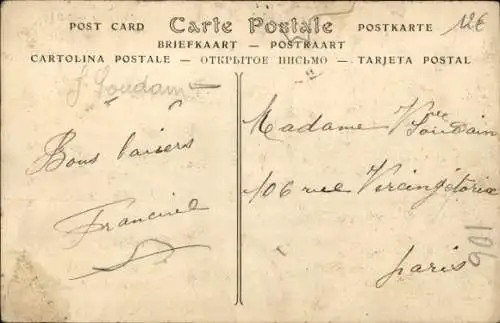 POST CARD Carte Postale POSTKARTE
12€
BRIEFKAART — POSTKAART
CARTOLINA POSTALE — ОТКРЫТОЕ ПИСЬМО — TARJETA POSTAL
J Soudain
Bons baisers
Francine
Madame Vve Soudain
106 rue Vercingétorix
paris
901